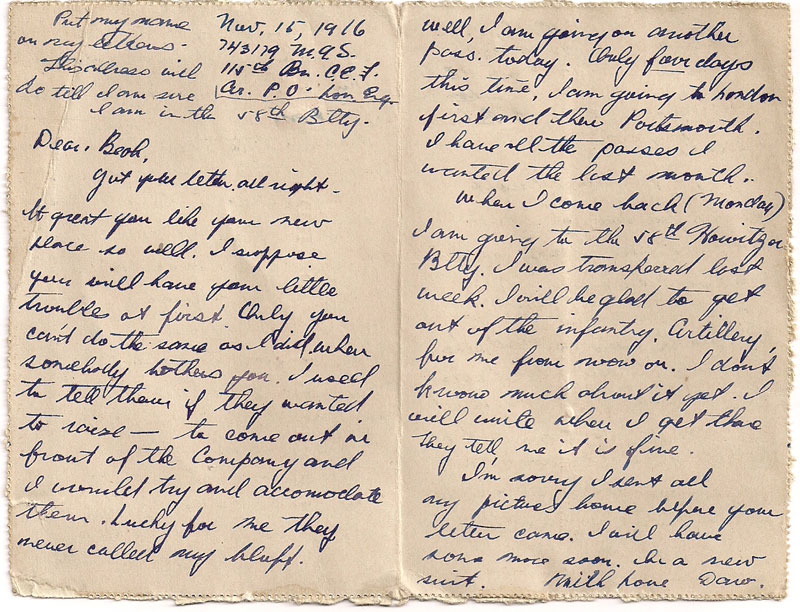 Put my name
on my letters.
This address will
do till I am sure
I am in the 58th Btty.
Nov. 15, 1916
743179 M.G.S.
115th Bn. C.E.F.
Ar. P.O. Lon. Eng.
Dear. Beoh,
Got your letter, all right.
It great you like your new
place so well. I suppose
you will have your little
troubles at first Only you
can't do the same as I did, when
somebody bothers you. I used
to tell them if they wanted
to raise — to come out in
front of the Company and
I would try and accomodate
them. Lucky for me they
never called my bluff.
well, I am going on another
pass. today. Only four days
this time, I am going to London
first and then Portsmouth.
I have all the passes I
wanted the last month.
When I come back (Monday)
I am going to the 58th Howitzer
Btty. I was transferred last
week. I will be glad to get
out of the infantry. Artillery,
for me from now on. I don't
know much about it yet. I
will write when I get there
they tell me it is fine.
I'm sorry I sent all
my pictures home before your
letter came. I will have
some more soon. In a new
suit. With love Daw.